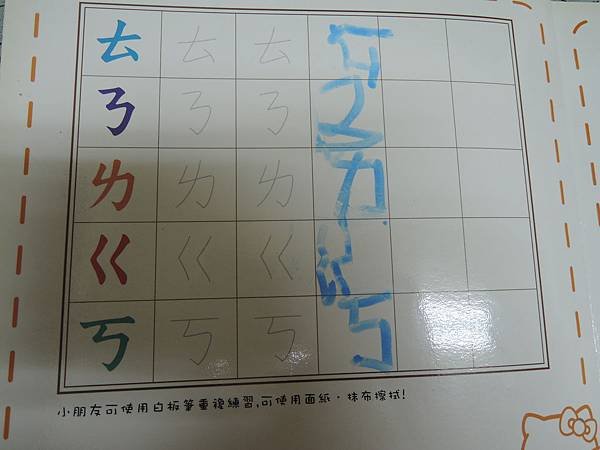 ㄊ ㄊ ㄊ ㄊ
ㄋ ㄋ ㄋ ㄋ
ㄌ ㄌ ㄌ ㄌ
ㄍ ㄍ ㄍ ㄍ
ㄎ ㄎ ㄎ ㄎ
小朋友可使用白板筆重複練習,可使用面紙・抹布擦拭!